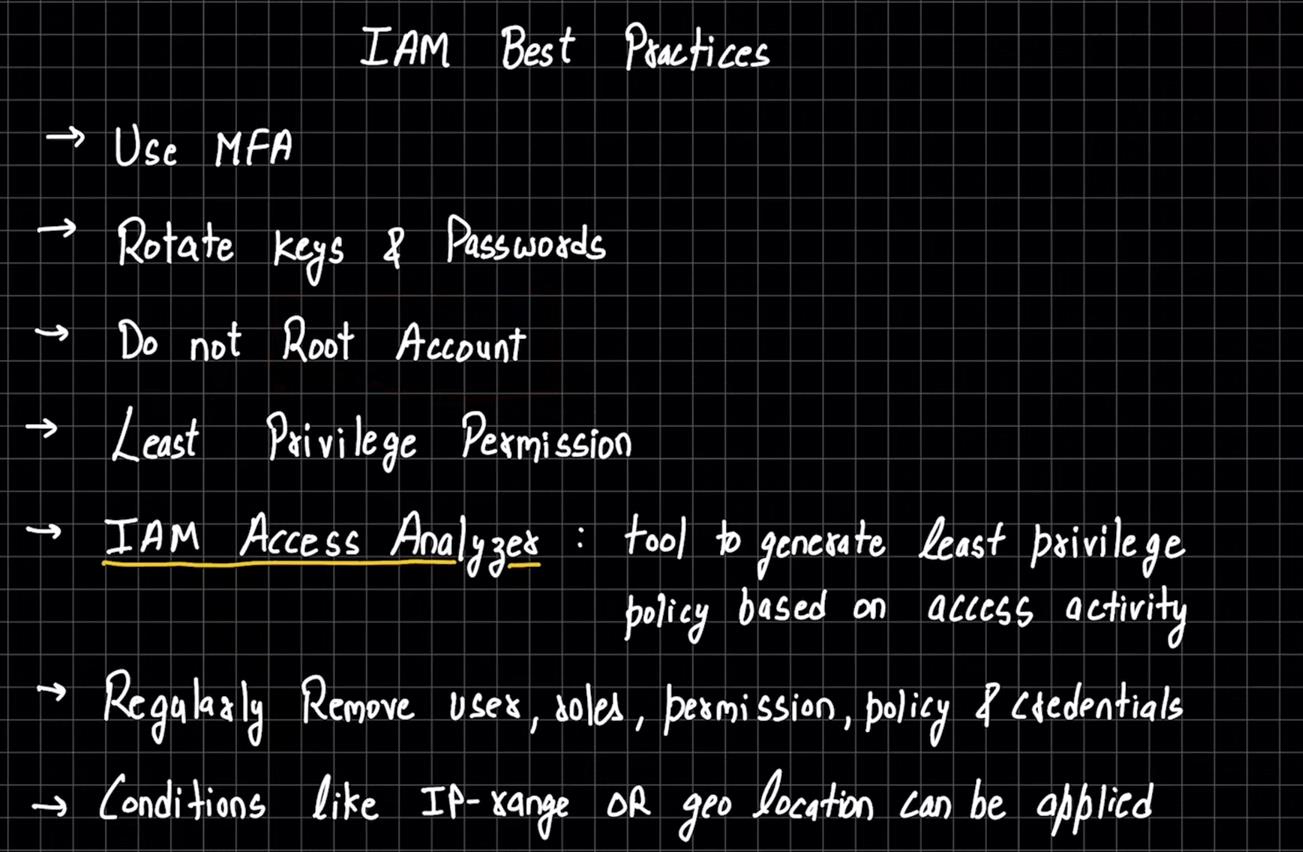 IAM Best Practices
→ Use MFA
→ Rotate keys & Passwords
→ Do not Root Account
→ Least Privilege Permission
→ IAM Access Analyzer : tool to generate least privilege
policy based on access activity
→ Regularly Remove user, roles, permission, policy & credentials
→ Conditions like IP-range OR geo location can be applied